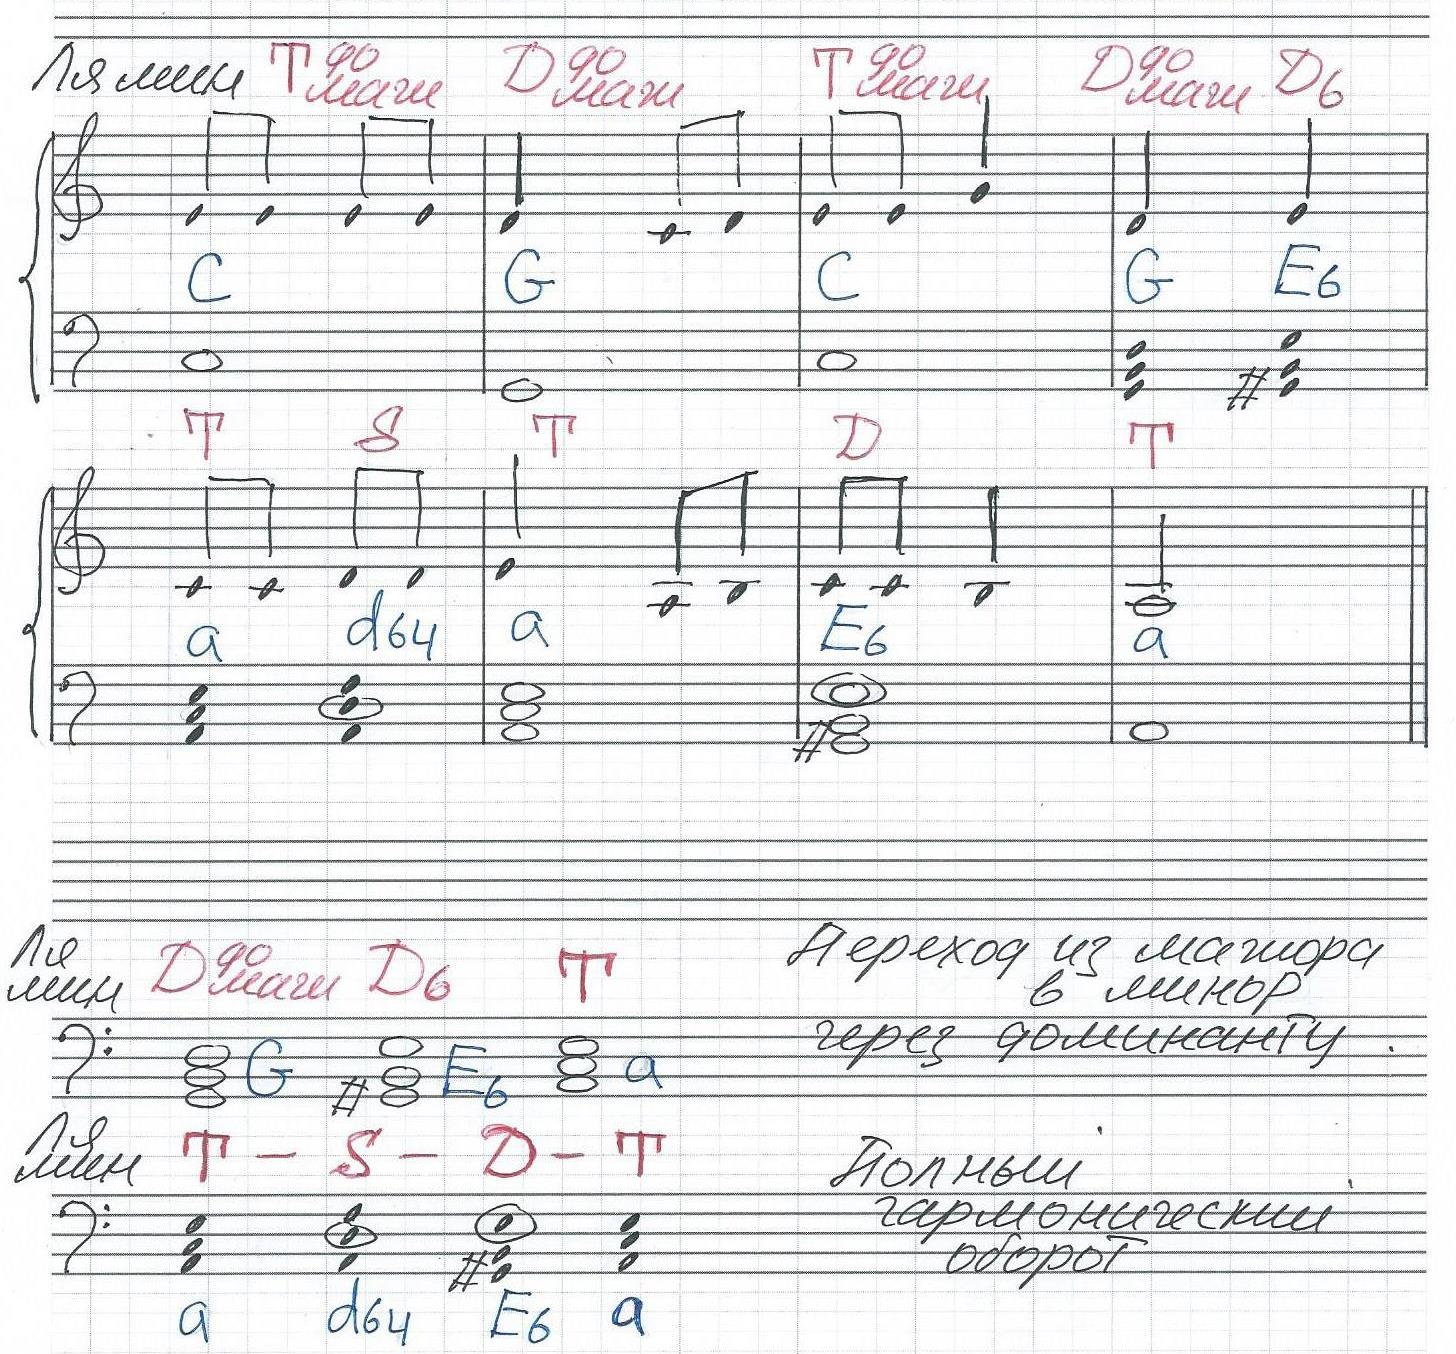 Ля мин Т до маж D до маж Т до маж D до маж D6
C G C G E6
T S T D T
a d64 a E6 a
Ля мин D до маж D6 T Переход из мажора
в минор
G E6 a через доминанту.
Ля мин T – S – D – T Полный
гармонический
оборот
a d64 E6 a